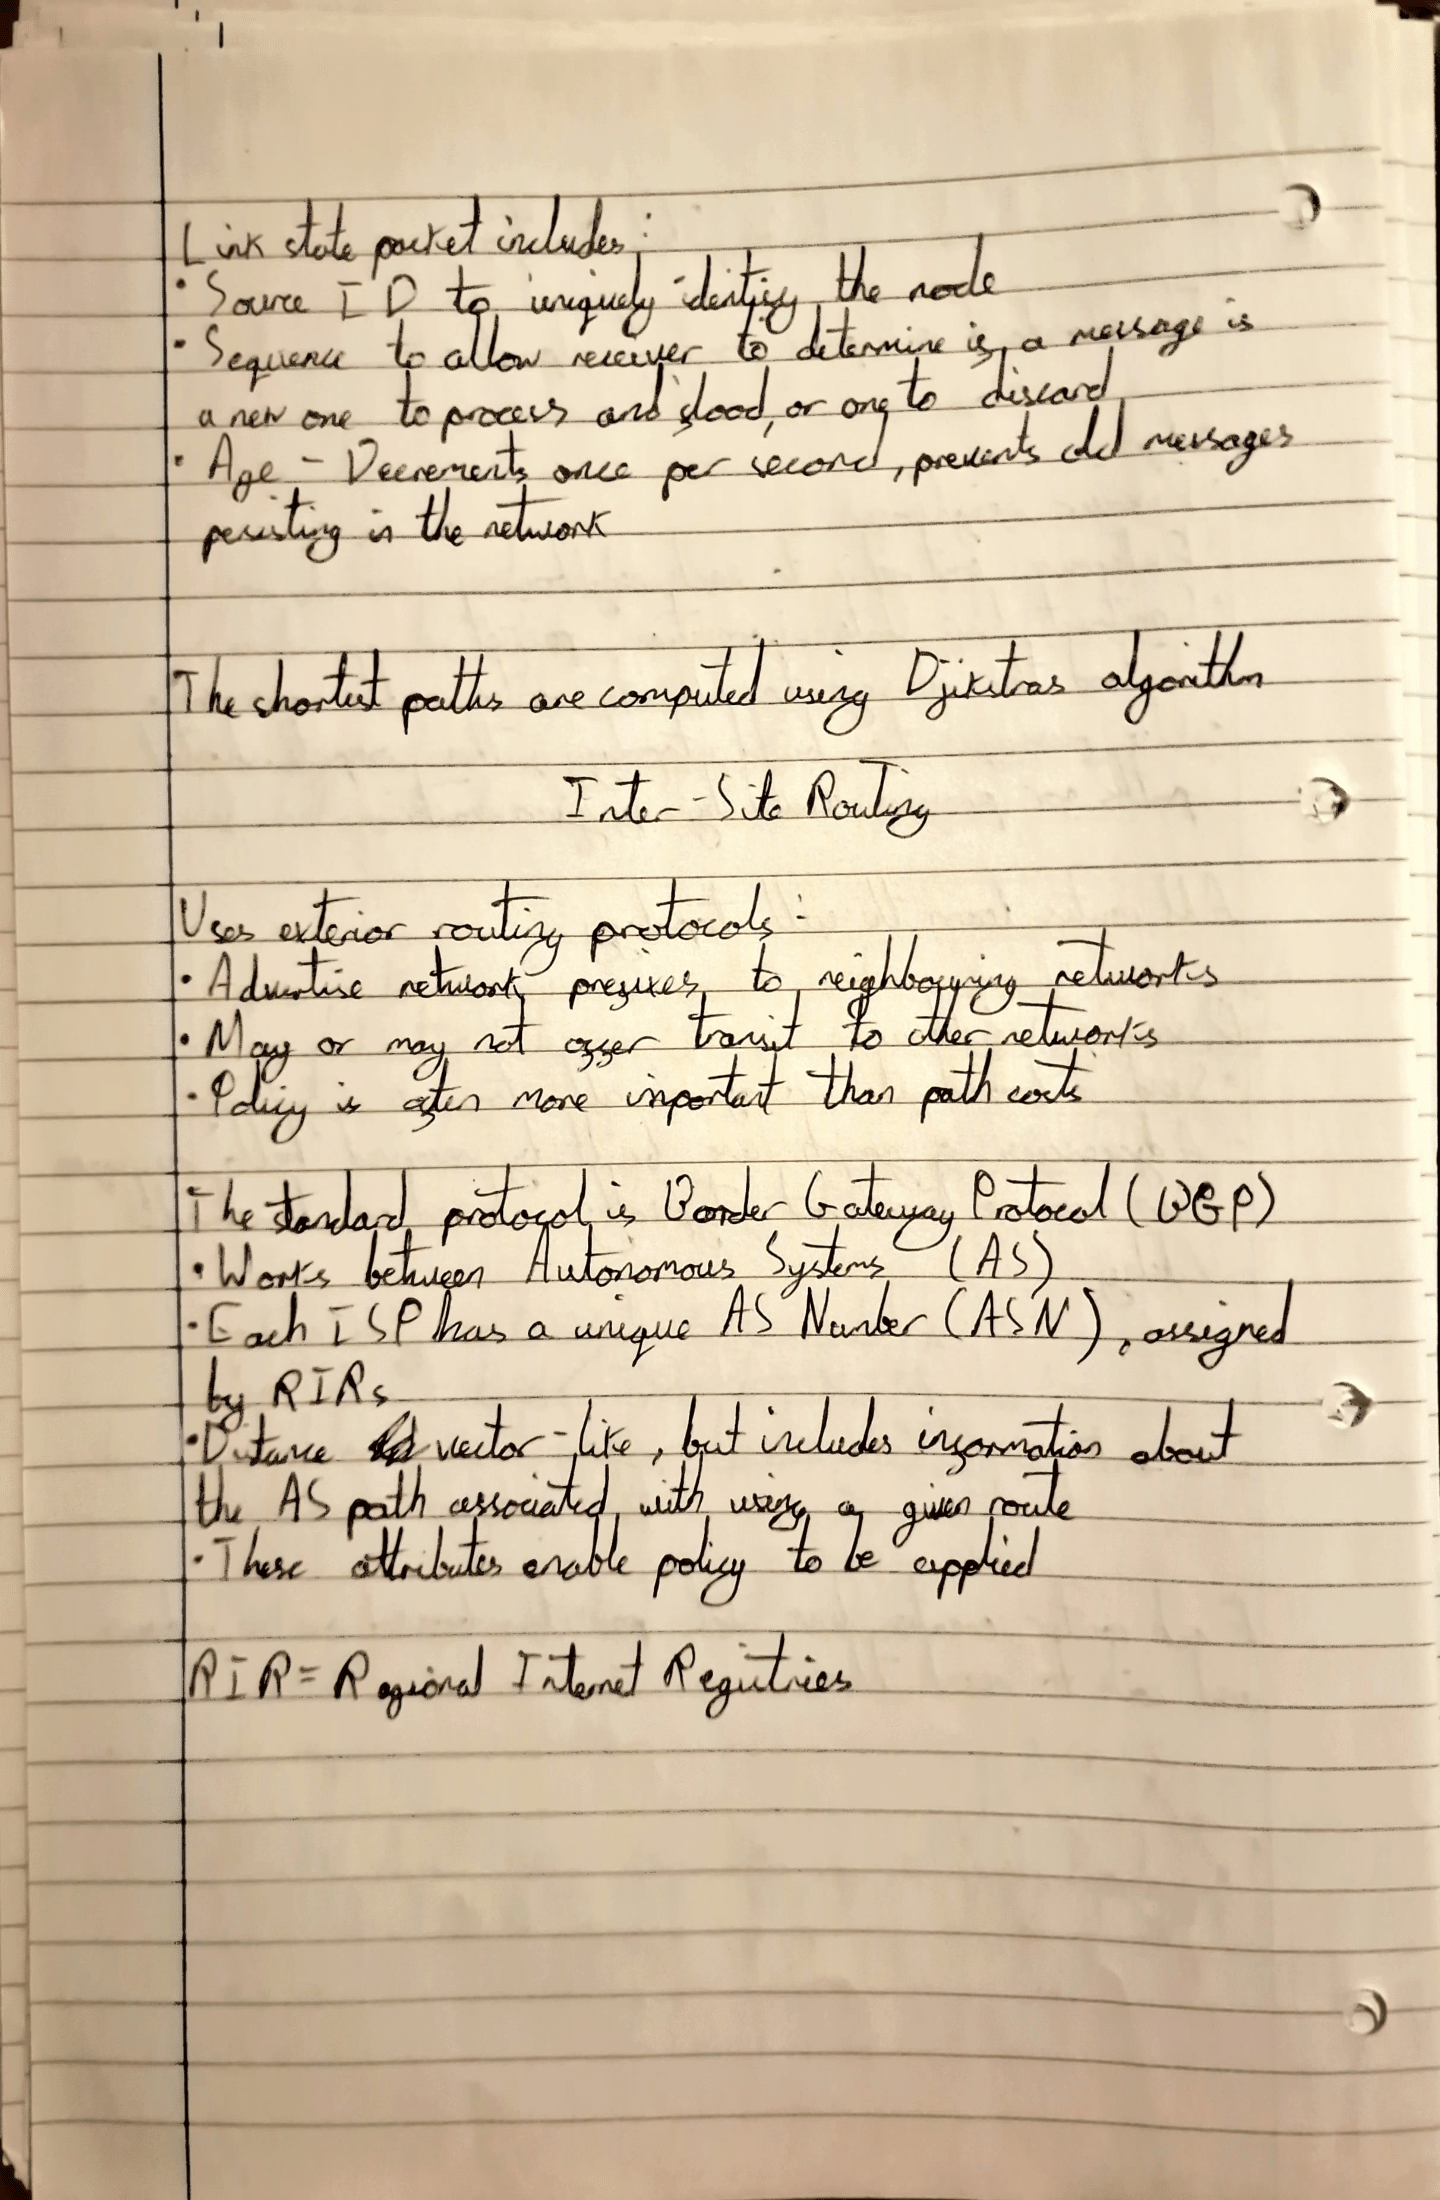 Link state packet includes:
• Source ID to uniquely identify the node
• Sequence to allow receiver to determine if a message is
a new one to process and flood, or one to discard
• Age - Decrements once per second, prevents old messages
persisting in the network
The shortest paths are computed using Djikstras algorithm
Inter-Site Routing
Uses exterior routing protocols:
• Advertise network prefixes to neighbouring networks
• May or may not offer transit to other networks
• Policy is often more important than path costs
The standard protocol is Border Gateway Protocol (BGP)
• Works between Autonomous Systems (AS)
• Each ISP has a unique AS Number (ASN), assigned
by RIRs
• Distance vector-like, but includes information about
the AS path associated with using a given route
• These attributes enable policy to be applied
RIR = Regional Internet Registries